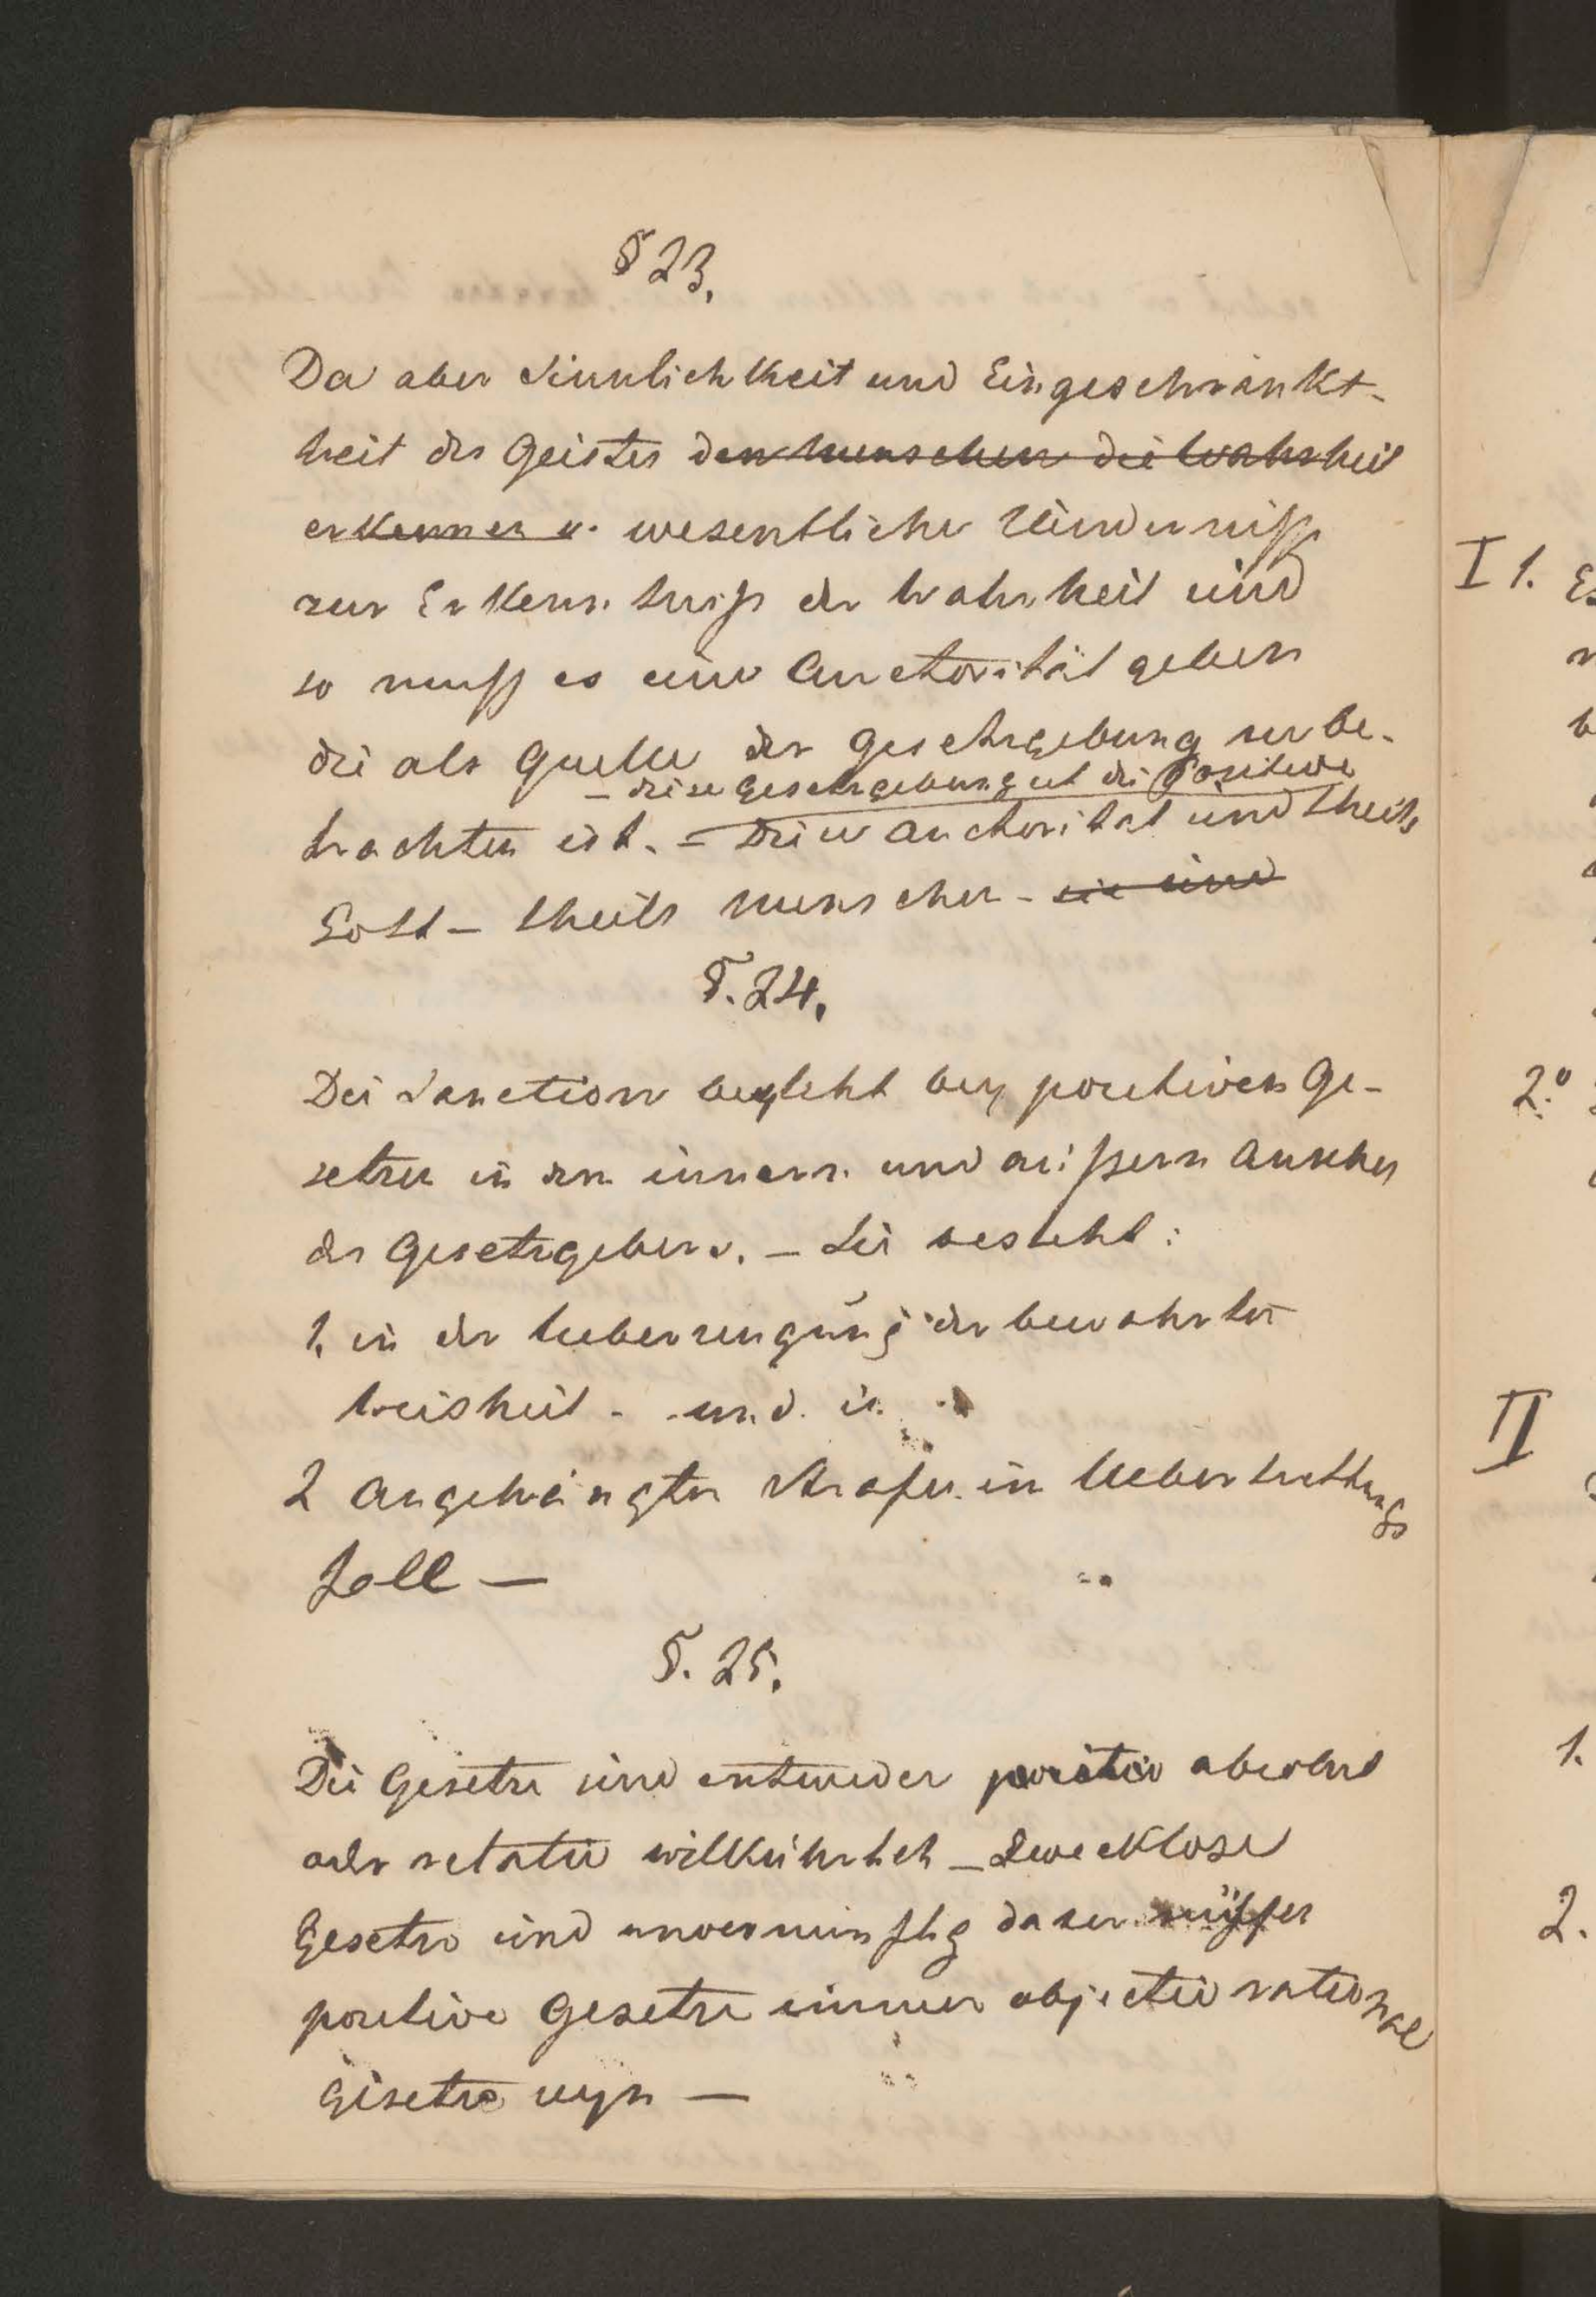 § 23.
Da aber Sinnlichkeit und Eingeschränkt-
heit des Geistes den Menschen die Wahrheit
erkennen u. wesentliche Hindernisse
zur Erkenntniß der Wahrheit sind
so muß es eine Auctorität geben
die als Quelle der Gesetzgebung zu be-
– diese Gesetzgebung ist die Positive
trachten ist. – Diese Auctorität sind theils
Gott – theils Menschen – sie sind
§. 24.
Die Sanction besteht bey positiven Ge-
setzen in dem innern und äußern Ansehen
des Gesetzgebers. – Sie besteht:
1. in der Ueberzeugung der bewährten
Weisheit – und in
2 angehängten Strafen im Uebertrettungs
fall –
§. 25.
Die Gesetze sind entweder positiv absolut
oder relativ willkührlich – Zwecklose
Gesetze sind unvernünftig daher müssen
positive Gesetze immer objectiv rational
Gesetze seyn –
I 1. Es
2.º
II
1.
2.